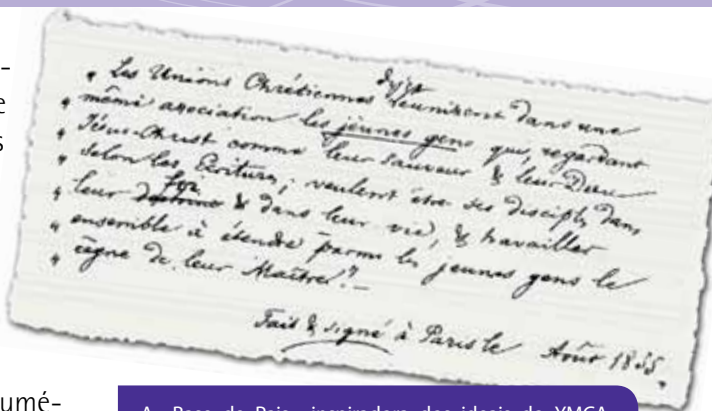 -
e
s
„ Les Unions Chrétiennes réunissent dans une
„ même association les jeunes gens qui, regardant
„ Jésus-Christ comme leur Sauveur & leur Dieu
„ selon les Ecritures, veulent être ses disciples dans
foi
„ leur doctrine & dans leur vie, & travailler
„ ensemble à étendre parmi les jeunes gens le
„ règne de leur Maître."—
Fait & signé à Paris le Août 1855.
umé-